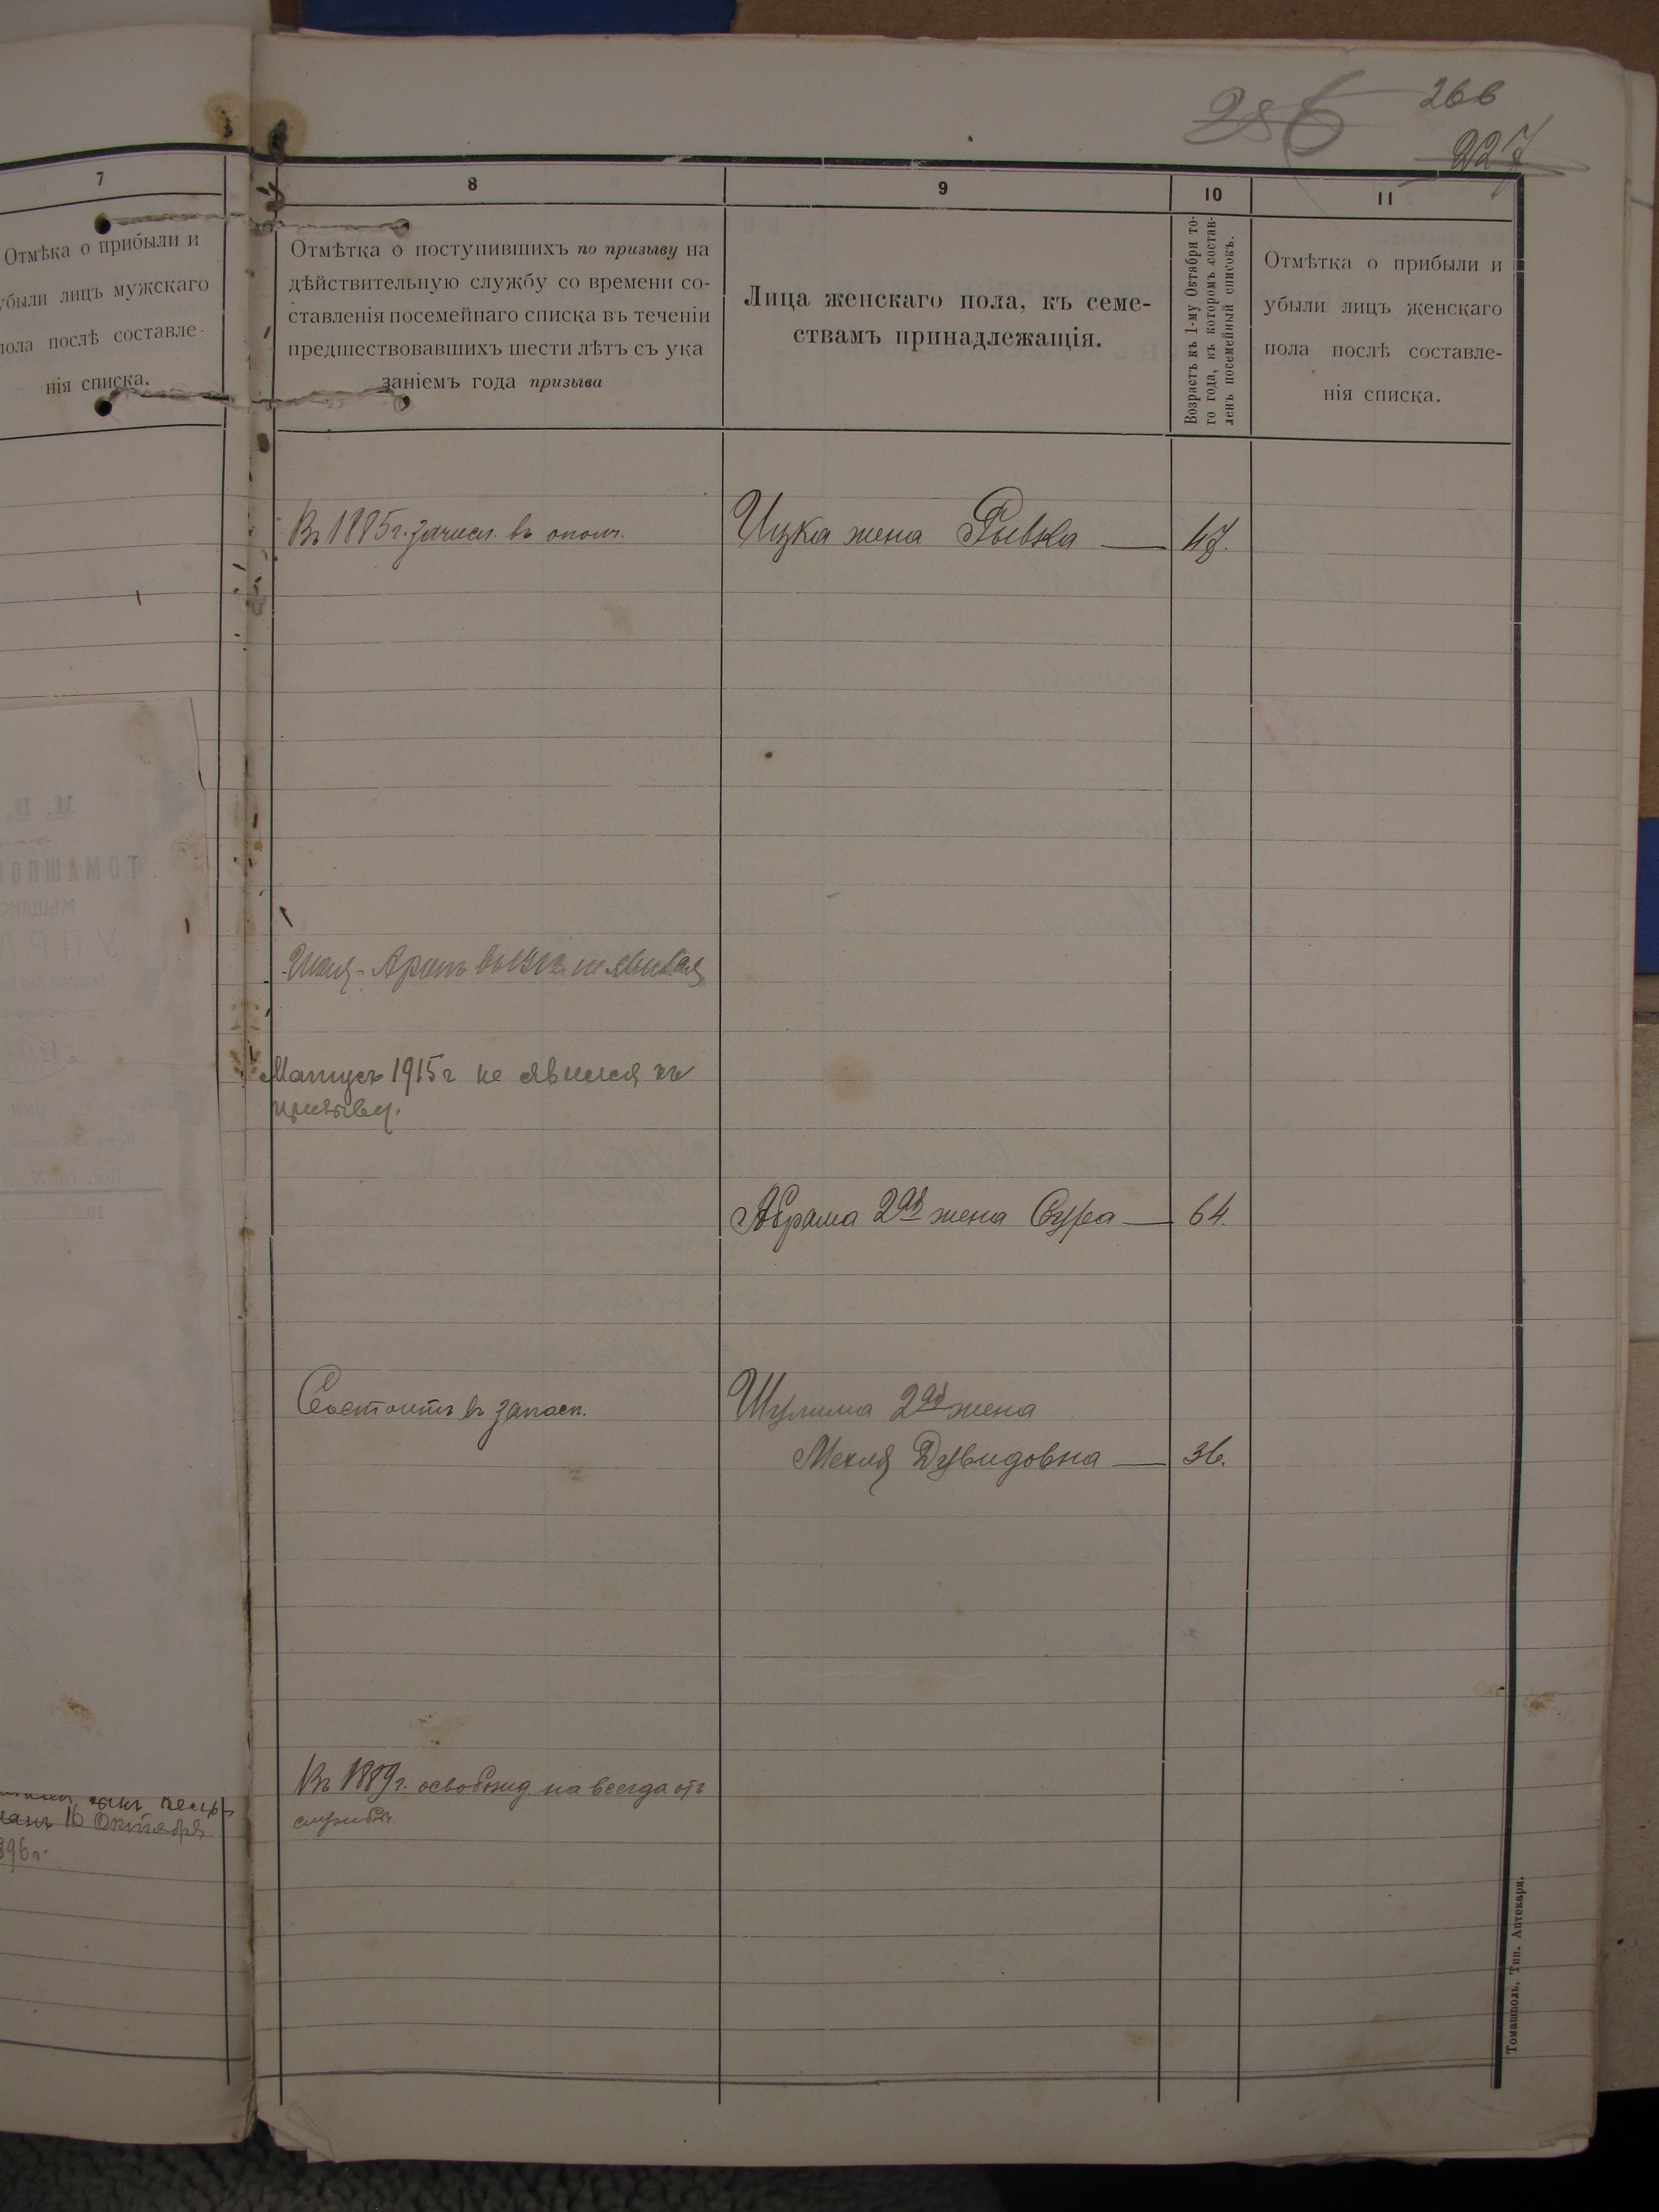 286
266
227
7
8
9
10
11
Отмѣка о прибыли и
убыли лицъ мужскаго
пола послѣ составле-
нія списка.
Отмѣтка о поступившихъ по призыву на
дѣйствительную службу со времени со-
ставленія посемейнаго списка въ теченіи
предшествовавшихъ шести лѣтъ съ ука
заніемъ года призыва
Лица женскаго пола, къ семе-
ствамъ принадлежащія.
Возрастъ къ 1-му Октября то-
го года, къ которомъ состав-
ленъ посемейный списокъ.
Отмѣтка о прибыли и
убыли лицъ женскаго
пола послѣ составле-
нія списка.
Въ 1885 г. зачисл. въ ополч.
Ицка жена Рывка — 47.
не явился
1915 г не явился къ
призыву.
Абрама 2ая жена Сура — 64.
Состоитъ въ запасѣ.
Шулима 2ая жена
Дувидовна — 36.
Въ 1889 г. освобожд. на всегда отъ
службы.
16 Октября
896 г.
Томашполь, Тип. Аптекаря.